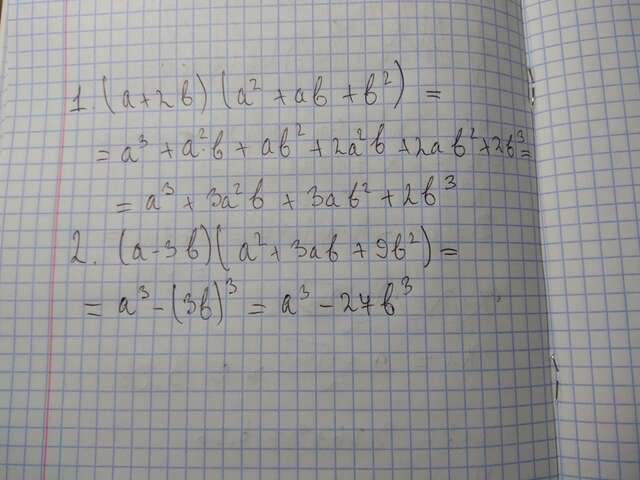 1. (a+2b)(a² + ab + b²) =
= a³ + a²·b + ab² + 2a²b + 2ab² + 2b³ =
= a³ + 3a²b + 3ab² + 2b³
2. (a-3b)(a² + 3ab + 9b²) =
= a³ - (3b)³ = a³ - 27b³